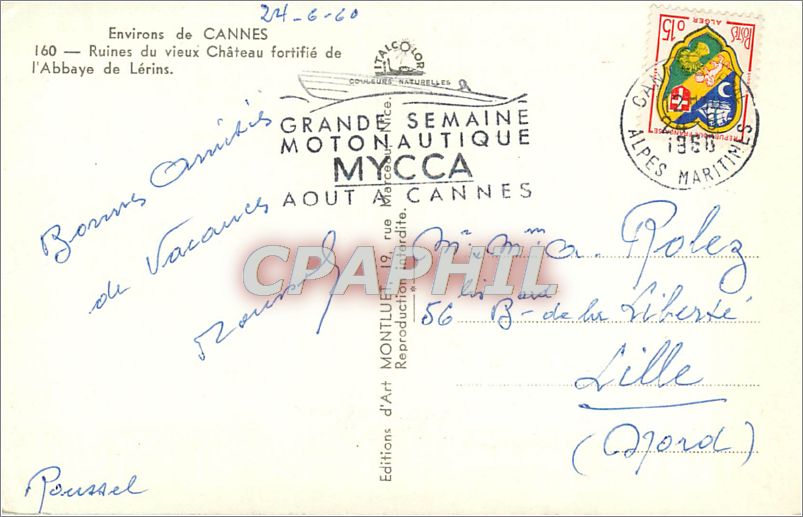 24-6-60
Environs de CANNES
160 — Ruines du vieux Château fortifié de
l'Abbaye de Lérins.
ITALCOLOR
COULEURS NATURELLES
GRANDE SEMAINE
MOTONAUTIQUE
MYCCA
AOUT A CANNES
POSTES
ALGER
0,15
REPUBLIQUE FRANÇAISE
CAN
1960
ALPES MARITIMES
Bonnes amitiés
de Vacances
Roussel
Editions d'Art MONTLUET, 19, rue Marceau, Nice.
Reproduction interdite.
CPAPHIL
Mr Mme a. Rolez
56 bis Bard de la Liberté
Lille
(Nord)
Roussel